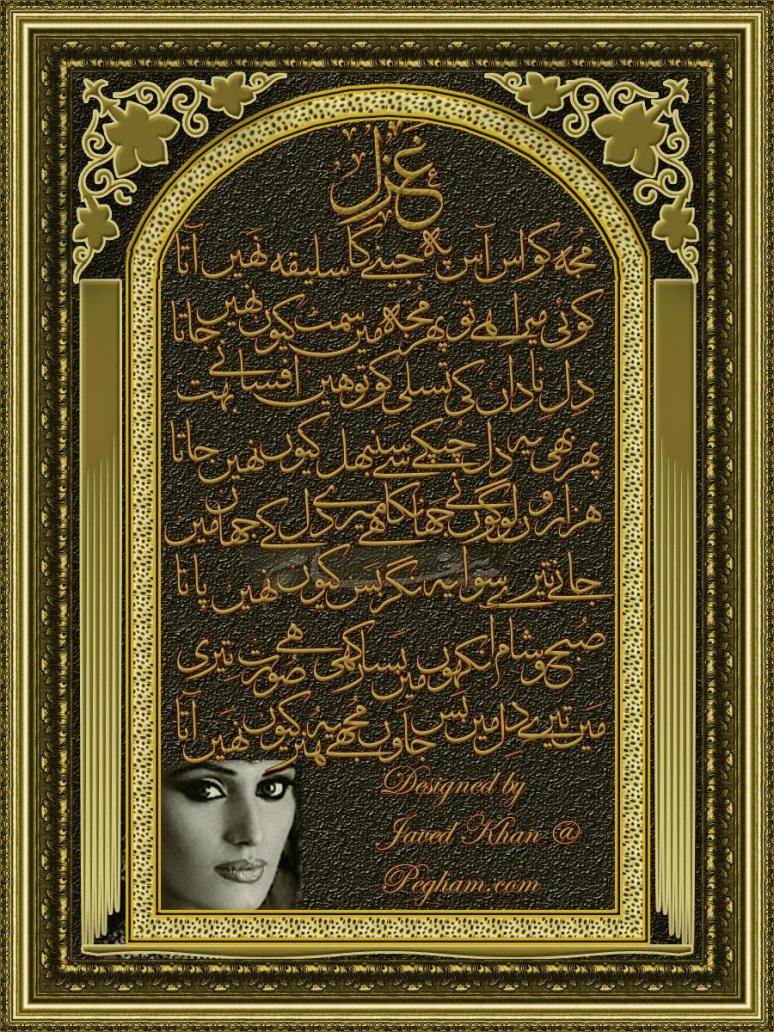 غزل
مجھ کو اس آس پہ جینے کا سلیقہ نھیں آتا
کوئی میرا ھے تو پھر مجھ میں سمٹ کیوں نھیں جاتا
دل ناداں کی تسلی کو توھیں افسانے بہت
پھر بھی یہ دل چپکے سے سنبھل کیوں نھیں جاتا
ھزاروں لوگوں نے جھانکا ھے میرے دل کے جھاں میں
جانے تیرے سوا یہ نگر بس کیوں نھیں پاتا
صبح و شام آنکھوں میں بسا رکھی ھے صورت تیری
میں تیرے دل میں بس جاوں مجھے یہ ھنر کیوں نھیں آتا
Designed by
Javed Khan @
Pegham.com